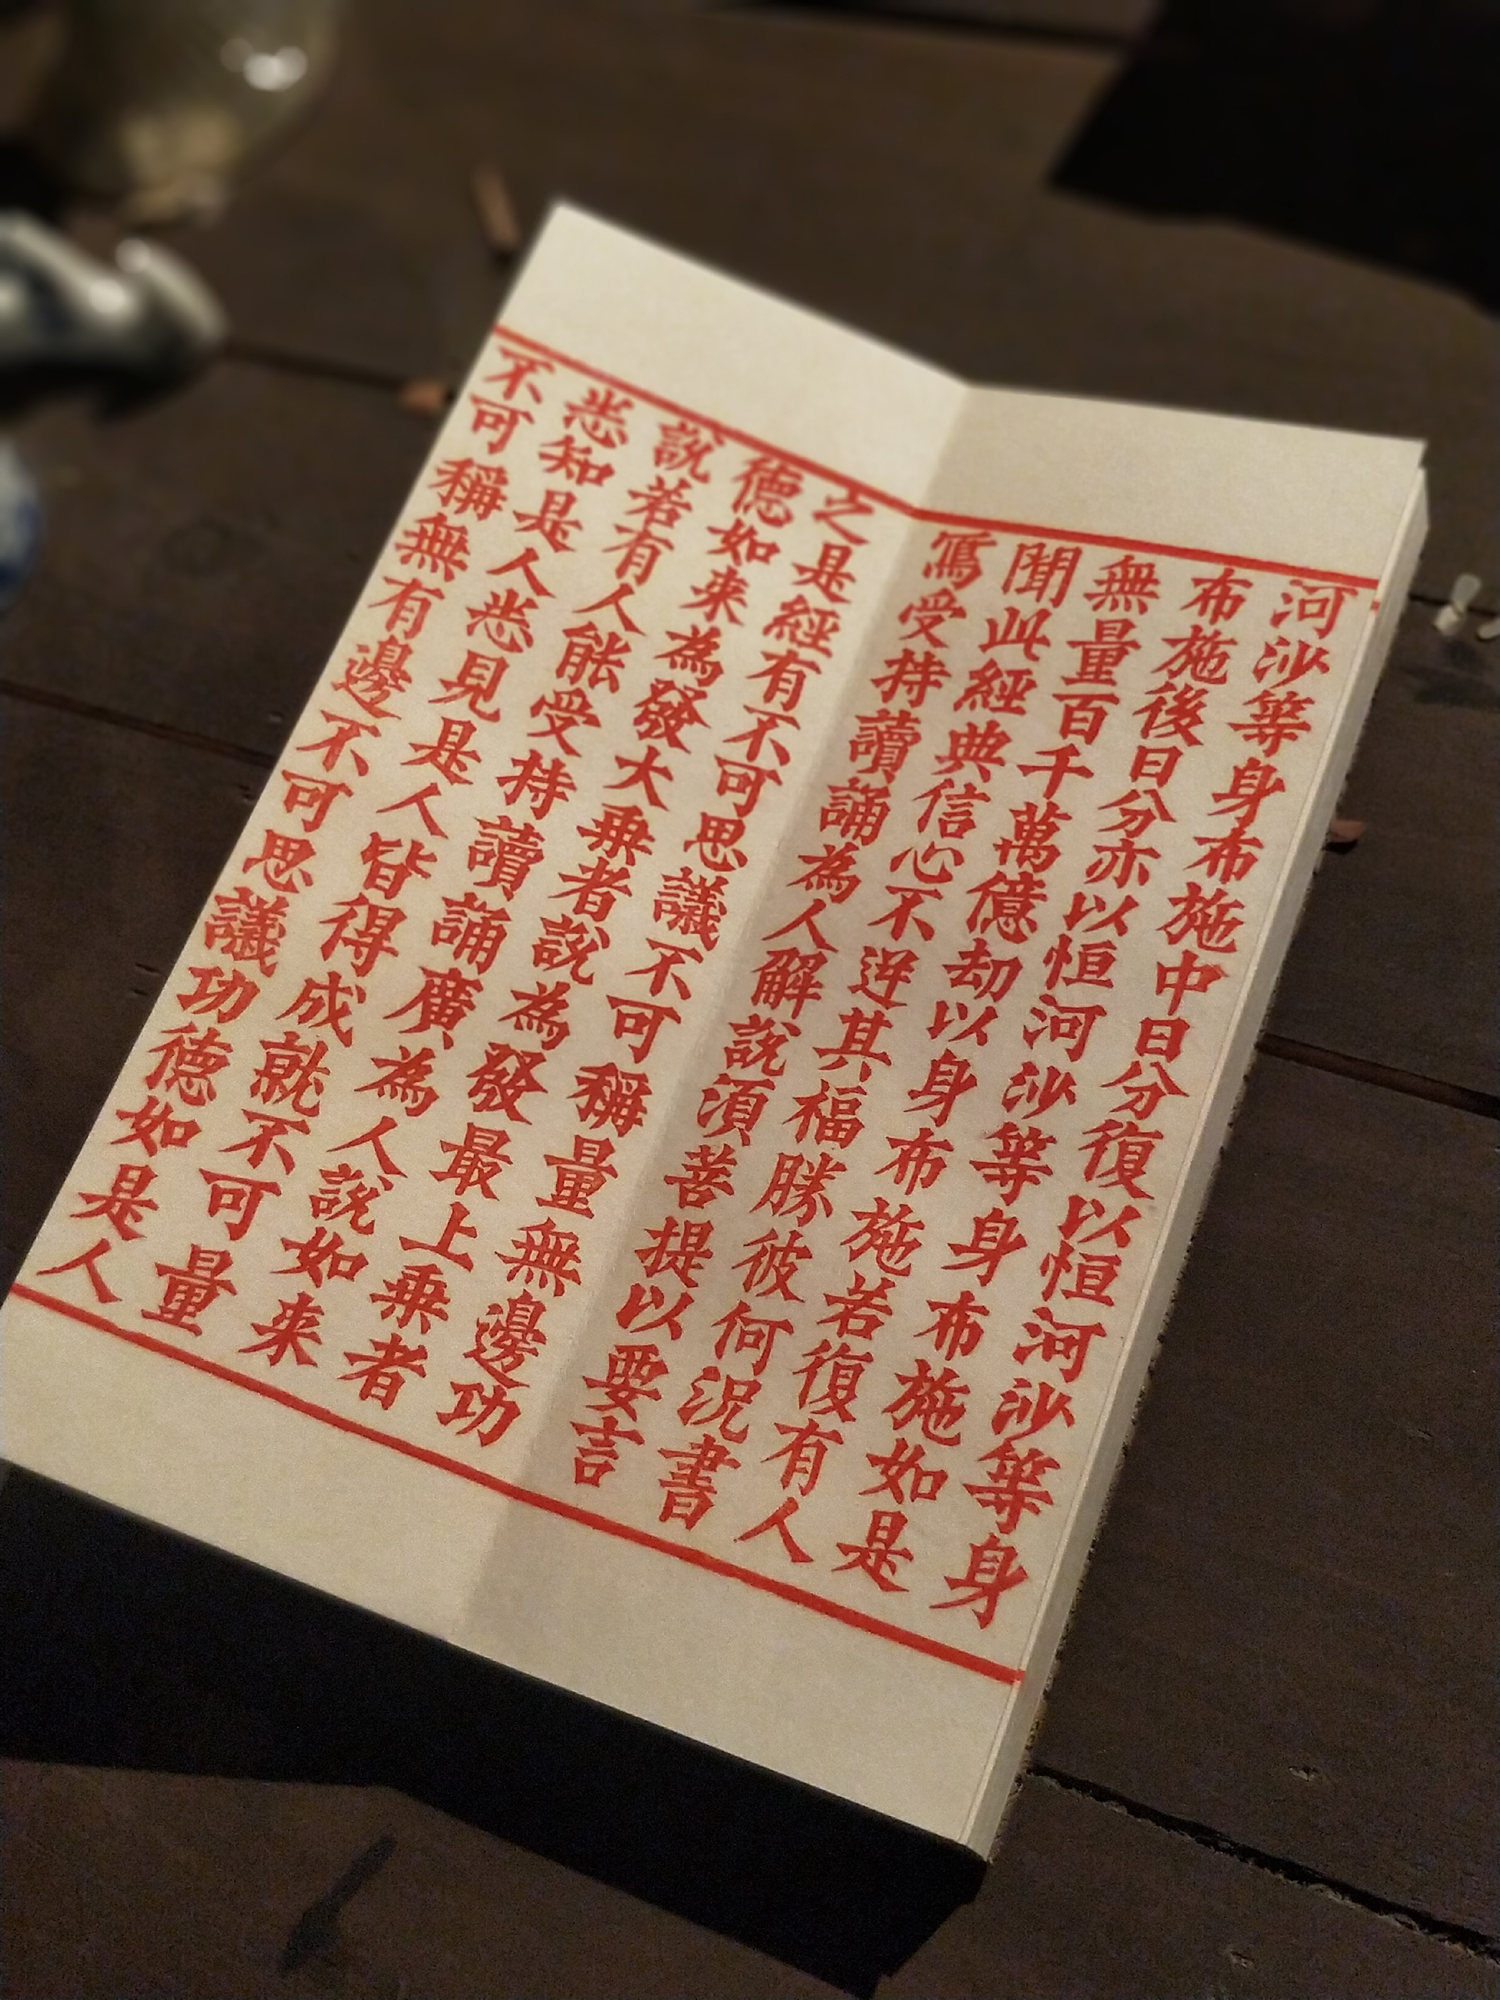 河沙等身布施中日分復以恒河沙等身
布施後日分亦以恒河沙等身布施如是
無量百千萬億劫以身布施若復有人
聞此經典信心不逆其福勝彼何況書
寫受持讀誦為人解說須菩提以要言
之是經有不可思議不可稱量無邊功
德如来為發大乗者說為發最上乗者
說若有人能受持讀誦廣為人說如来
悉知是人悉見是人皆得成就不可量
不可稱無有邊不可思議功德如是人